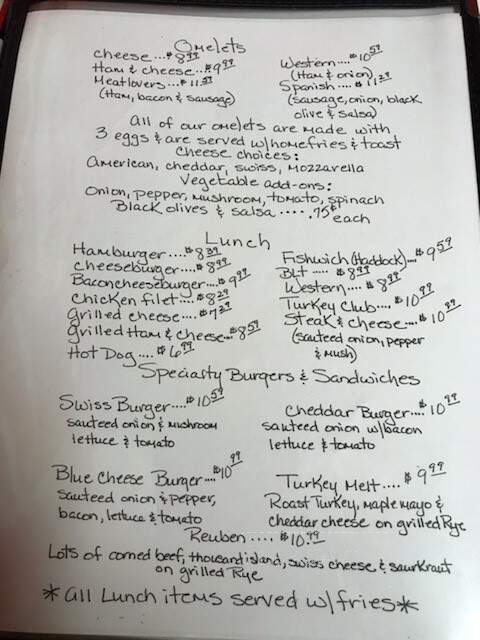 Omelets
cheese...$8.99
Ham & cheese...$9.99
Meatlovers...$11.59
(Ham, bacon & sausage)
Western....$10.59
(Ham & onion)
Spanish....$11.29
(sausage, onion, black
olive & salsa)
All of our omelets are made with
3 eggs & are served w/homefries & toast
Cheese choices:
American, cheddar, swiss, mozzarella
Vegetable add-ons:
Onion, pepper, mushroom, tomato, spinach
Black olives & salsa .... .75¢ each
Lunch
Hamburger....$8.39
Cheeseburger...$8.99
Baconcheeseburger...$9.99
Chicken filet....$8.29
Grilled cheese....$7.29
Grilled Ham & Cheese...$8.59
Hot Dog.... $6.99
Fishwich (Haddock)...$9.59
BLT .... $8.99
Western.... $8.99
Turkey Club....$10.99
Steak & cheese....$10.99
(sauteed onion, pepper
& mush)
Specialty Burgers & Sandwiches
Swiss Burger....$10.59
sauteed onion & mushroom
lettuce & tomato
Cheddar Burger....$10.99
sauteed onion w/bacon
lettuce & tomato
Blue Cheese Burger....$10.99
sauteed onion & pepper,
bacon, lettuce & tomato
Turkey Melt.... $9.99
Roast Turkey, maple mayo &
cheddar cheese on grilled Rye
Reuben .... $10.99
Lots of corned beef, thousand island, swiss cheese & saurkraut
on grilled Rye
*all Lunch items served w/fries*